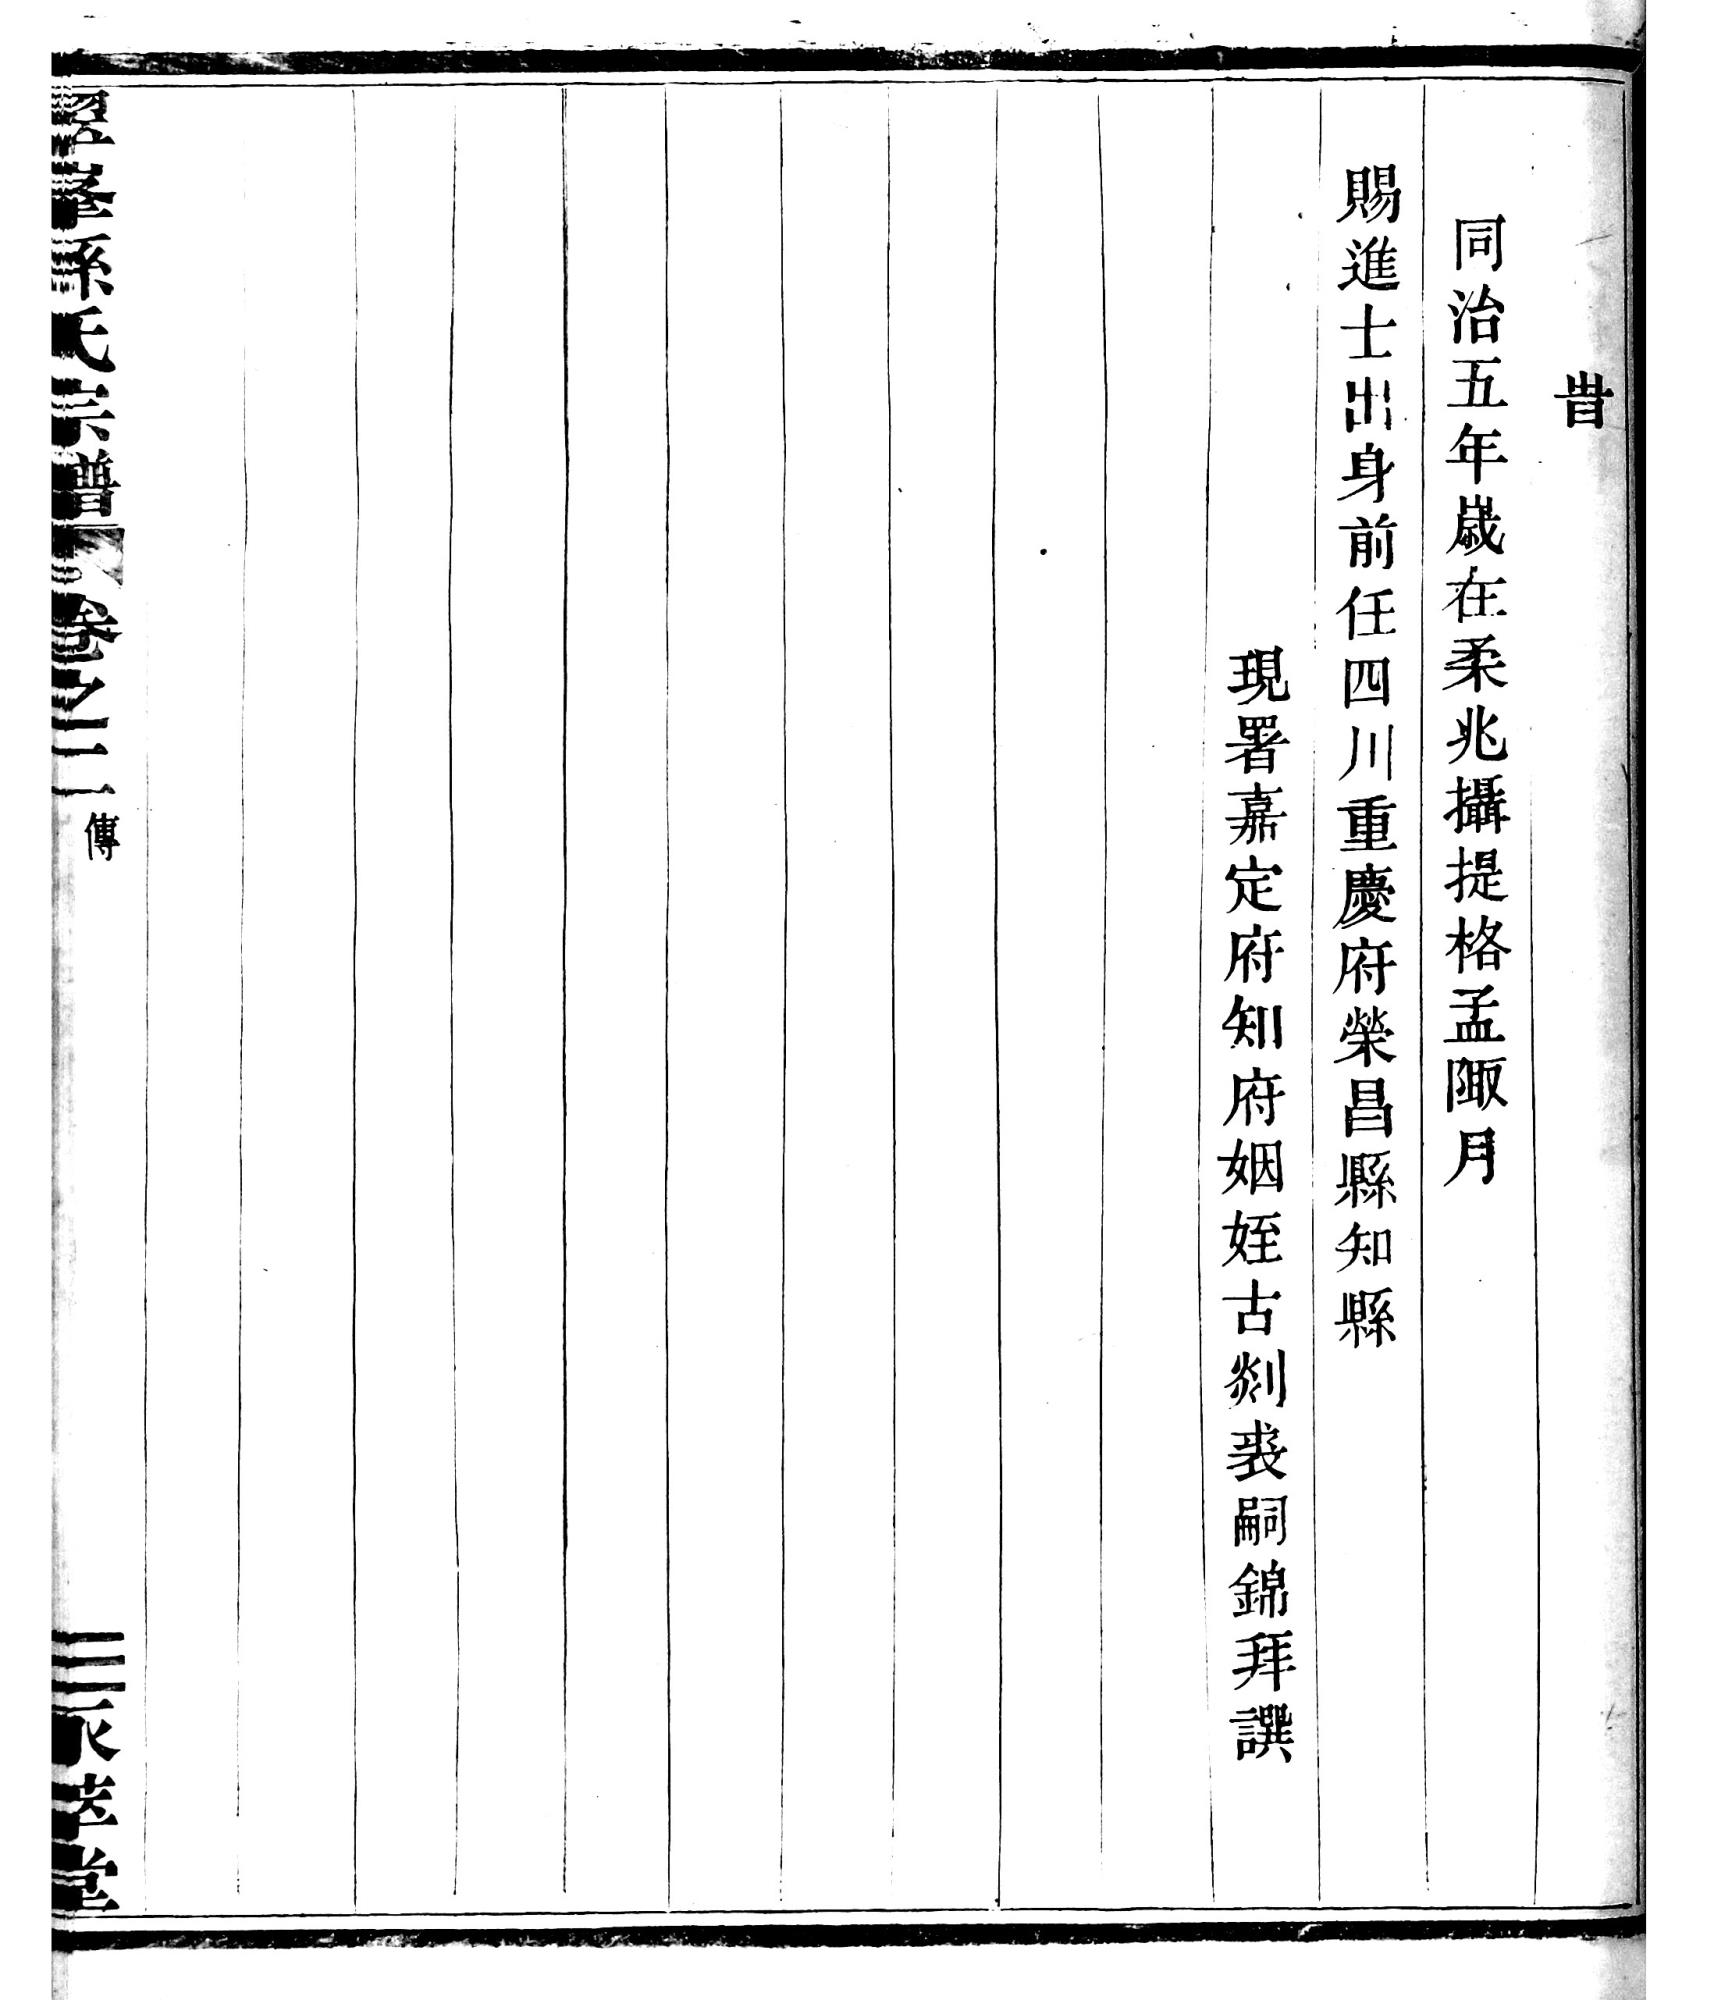 旹
同治五年歲在柔兆攝提格孟陬月
賜進士出身前任四川重慶府榮昌縣知縣
現署嘉定府知府姻姪古剡裘嗣錦拜譔
峯孫氏宗譜 卷之二 傳 堂